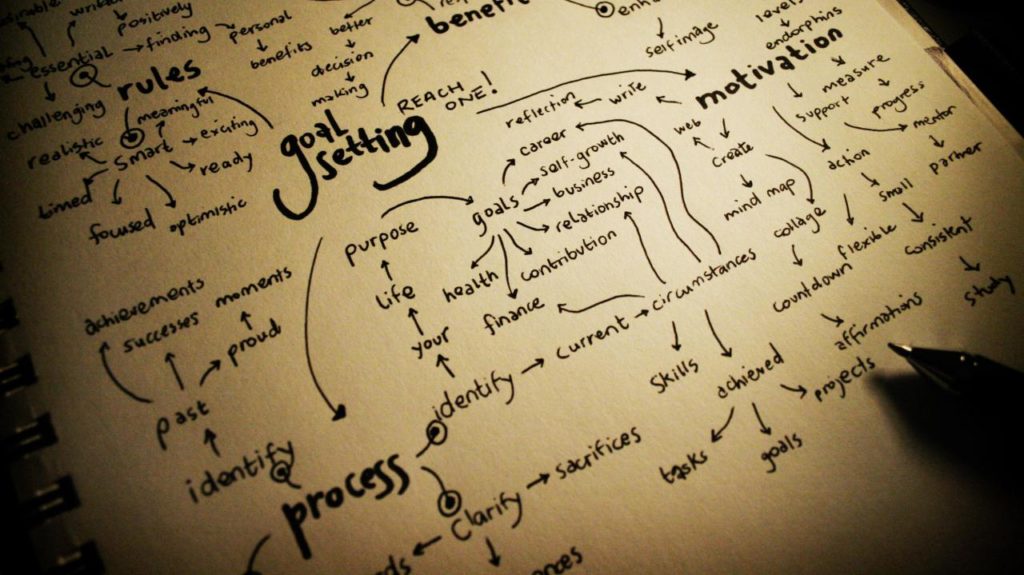 positively
essential
finding
personal
benefits
better
decision
making
benefit
self image
levels
endorphins
rules
challenging
meaningful
realistic
smart
exciting
ready
timed
focused
optimistic
goal
setting
REACH
ONE!
motivation
reflection
write
web
create
mind map
collage
countdown
affirmations
measure
support
progress
mentor
partner
action
small
flexible
consistent
study
career
self-growth
business
relationship
contribution
goals
health
finance
purpose
life
your
identify
current
circumstances
skills
achieved
projects
tasks
goals
achievements
successes
moments
proud
past
identify
process
clarify
sacrifices